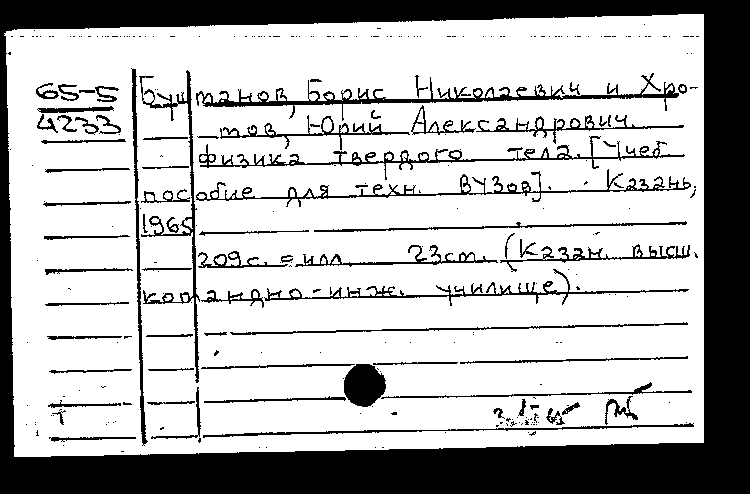 65-5 Буштанов, Борис Николаевич и Хро-
4233 тов, Юрий Александрович.
Физика твердого тела. [Учеб.
пособие для техн. ВУЗов]. Казань,
1965
209 с. с илл. 23 см. (Казан. высш.
командно-инж. училище).